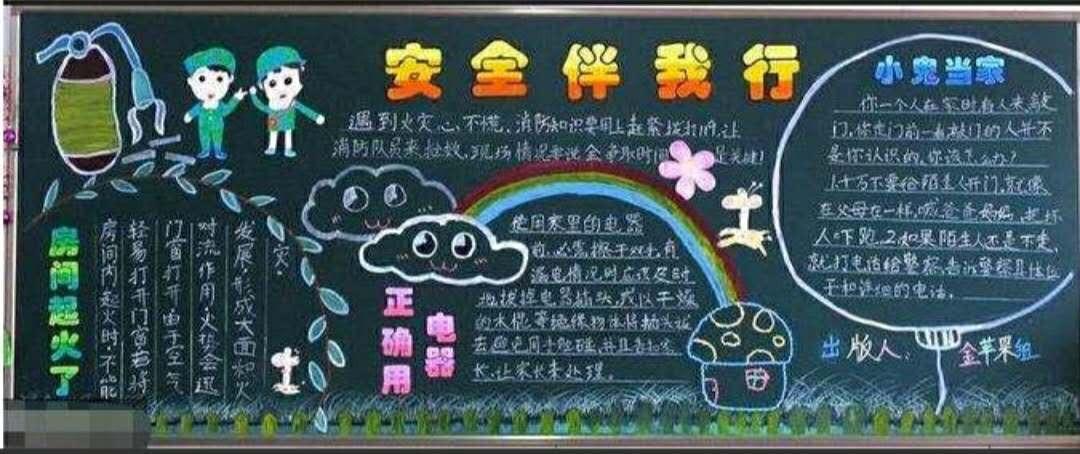 安全伴我行
遇到火灾心不慌、消防知识要用上赶紧拨打119,让
消防队员来拯救,现场情况要说全争取时间是关键!
房间起火了
房间内起火时,不能
轻易打开门窗若将
门窗打开由于空气
对流作用,火势会迅
发展,形成大面积火
灾。
正确用
电器
使用家里的电器
前,必需擦干双手,有
漏电情况时应该及时
拔掉电器插头,或以干燥
的木棍等绝缘物体将插头拔
去避免用手触碰,并且告知家
长,让家长来处理。
小鬼当家
你一个人在家时有人来敲
门,你走门前一看敲门的人并不
是你认识的,你该怎么办?
1.千万不要给陌生人开门,就像
在父母在一样,喊爸爸妈妈,把坏
人吓跑。2.如果陌生人还是不走,
就打电话给警察,告诉警察具体位
于和详细的电话。
出版人:金苹果组